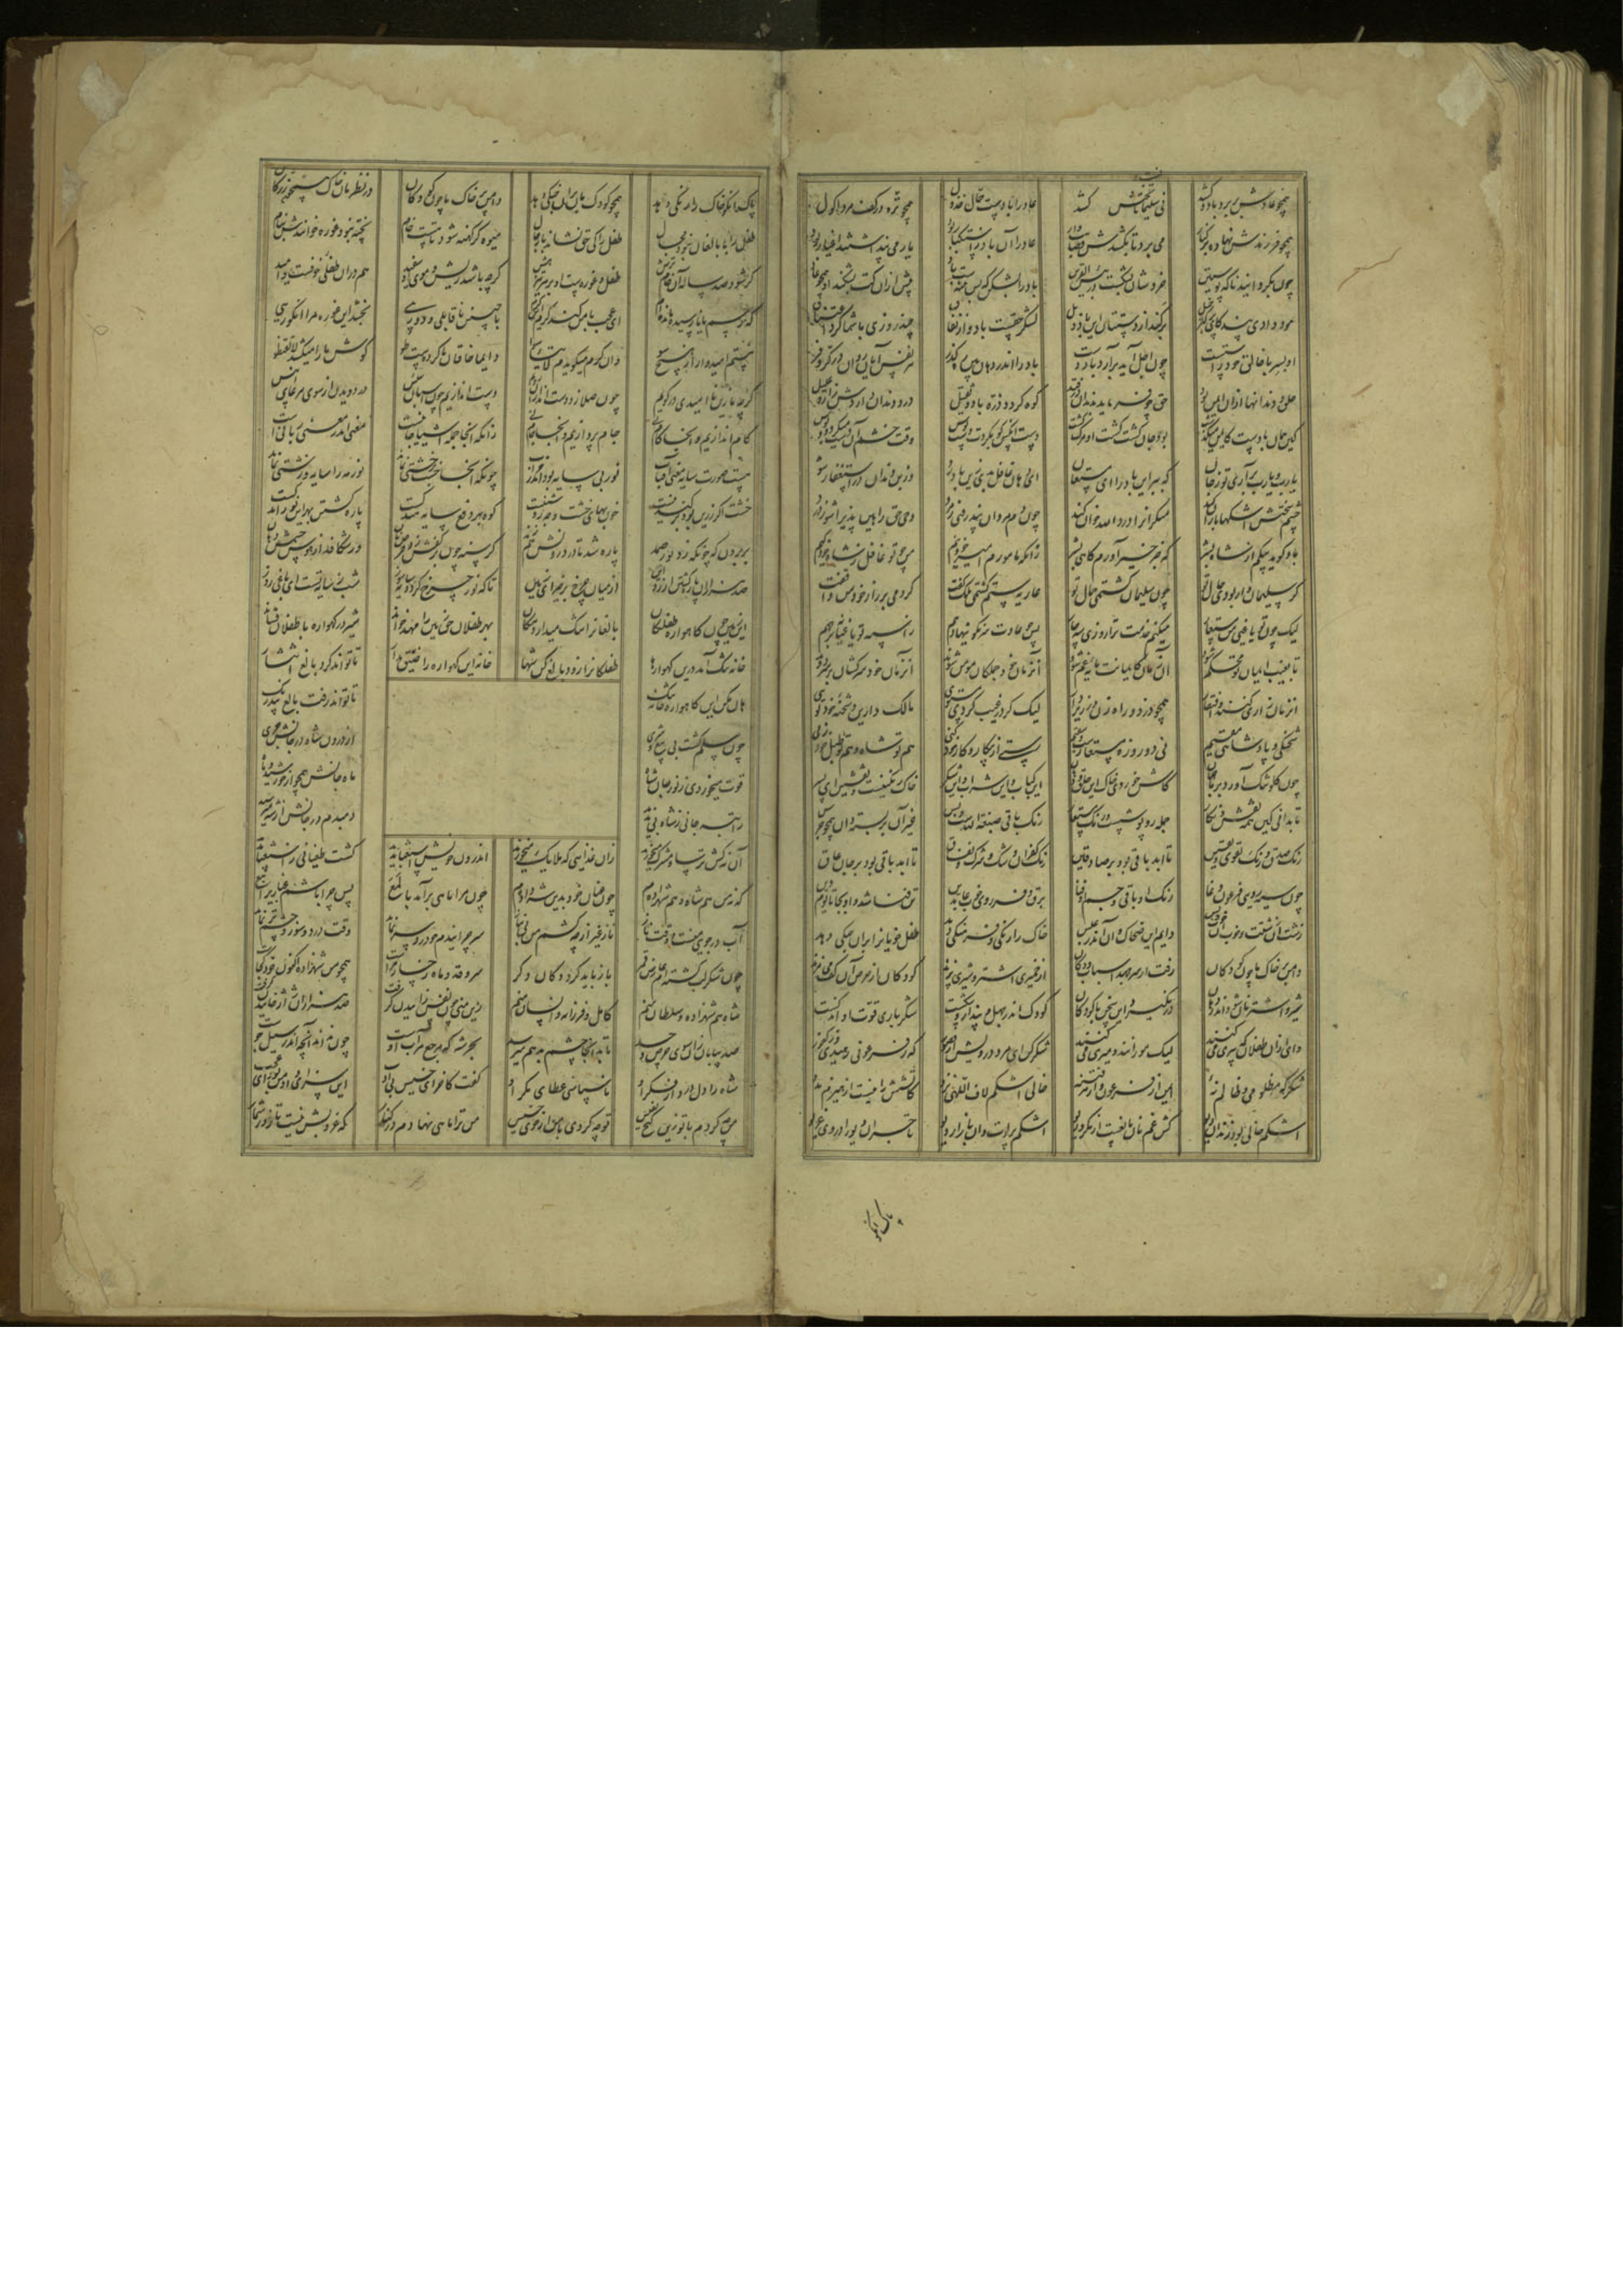 همچو عادش بر برد باد و کشد
عاد را بادست حمال خذول همچو بره در کف مرد اکول
همچو فرزندش نهاده بر کنار می برد تا بکشدش قصاب وار عاد را آن باد ز استکبار بود یار می پنداشتند اغیار بود
چون بگردانید ناگه پوستین خردشان بشکست بئس القرین باد را بشکن که بس فتنست باد پیش ازان کت بشکند او همچو عاد
هود دادی پند کای پر کبر خیل برکند از دستتان این باد ذیل لشکر حقست باد و از نفاق چند روزی با شما کرد اعتناق
او بسر با خالق خود راستست چون اجل آید برآرد باد دست باد را اندر دهان بین رهگذر هر نفس آیان روان در کر و فر
حلق و دندانها ازان ایمن بود حق چو فرماید بدندان در فتد کوه گردد ذره باد و ثقیل درد دندان داردش زار و علیل
کین همان بادست کایمن میگذشت بود جان کشت گشت او مرگ کشت دست آنکس که بکردت دست بوس وقت خشم آن دست میگردد دبوس
یا رب و یا رب برآری تو ز جان که ببر این باد را ای مستعان ای دهان غافل بدی زین باد رو وز بن دندان در استغفار شو
چشم سختش اشکها باران کند منکرانرا درد الله خوان کند چون دم مردان نپذرفتی ز مرد وحی حق را هین پذیرا شو ز درد
باد گوید پیکم از شاه بشر زانکه مامورم امیر خود نیم من چو تو غافل ز شاه خود کیم
گر سلیمان وار بودی حال تو چون سلیمان گشتمی حمال تو عاریه ستم گشتمی ملک کفت کردمی بر راز خود من واقفت
لیک چون تو یاغیی من مستعار میکنم خدمت ترا روزی سه چار پس چو عادت سرنگونیها دهم ز اسپه تو یاغیانه بر جهم
تا بغیب ایمان تو محکم شود آن زمان کایمانت مایه غم شود آنزمان خود جملگان مومن شوند آنزمان خود سرکشان بر سر دوند
آنزمان زاری کنند و افتقار همچو دزد و راه زن در زیر دار لیک گر در غیب گردی مستوی مالک دارین و شحنه خود توی
شحنگی و پادشاهی مقیم نی دو روزه مستعارست و سقیم رستی از پیکار و کار خود کنی هم تو شاه و هم تو طبل خود زنی
چون گلو تنگ آورد بر ما جهان کاش خوردی خاک این حلق و دهان این کباب و این شراب و این شکر خاک رنگینست و نقشین ای پسر
تا بدانی کین همه نقش و نگار جمله روپوشست و رنگ مستعار رنگ باقی صبغة الله است و بس غیر آن بر بسته دان همچو جرس
رنگ صدق و رنگ تقوی و یقین تا ابد باقی بود بر صادقین رنگ کفران و شک و شرک و نفاق تا ابد باقی بود بر جان عاق
چون سیه رویی فرعون دغا رنگ او باقی و جسم او فنا برق و فر روی خوب صادقین تن فنا شد و او بجا تا یوم دین
زشت آن زشتست و خوب آن خوب و بس دایم این ضحاک و آن اندر عبس خاک را رنگی و فر و سنگی دهد طفل خویانرا بران جنگی دهد
دامن پر خاک ما چون کودکان از خمیری اشتر و شیری پزند کودکان از حرص آن کف می مزند
شیر و اشتر نان شود اندر دهان در نگیرد این سخن با کودکان کودک اندر جهل و پندار و شکست شکر باری قوت او اندکست
وای ازان طفلان که پیری میکنند لیک مورانند و میری میکنند شکر کن ای مرد درویش از قصور که ز فرعونی رهیدی وز کفور
شکر که مظلومی و ظالم نه ایمن از فرعونی و از فتنه خالی اشکم لاف اللهی نزد کاتشش را نیست از هیزم مدد
اشکم خالی بود زندان دیو کش غم نان مانعست از مکر و ریو اشکم پر لوت دان بازار دیو تاجران دیو را در وی غریو
خاک را رنگی دهد همچو کودکمان بران جنگی دهد دامن پر خاک ما چون کودکان در نظرمان خاک همچون زر کان
طفل را با بالغان نبود مجال طفل را کی حق نشاند با رجال میوه گر کهنه شود تا هست خام پخته نبود غوره خوانندش بنام
گر شود صد ساله آن خام ترش طفل و غوره ست او بر هر تیز هش گرچه باشد ریش و موی او سپید هم دران طفلی خوفست و امید
که رسم یا نارسیده مانده ام ای عجب با من کند کرم آن کرم با چنین ناقابلی و دوریی بخشد این غوره مرا انگوریی
نیستم امیدوار از هیچ سو وان کرم میگویدم لا تیاسوا دایما خاقان ما کردست طو گوش ما را میکشد لا تقنطوا
گرچه ما زین نا امیدی در گویم چون صلا زد دست اندازان رویم دست اندازیم چون اسپان سیس در دویدن از سوی مرعای انیس
گام اندازیم و آنجا گام نی جام پردازیم و آنجا جام نی زانکه آنجا جمله اشیا جانیست معنی اندر معنی ربانیست
هست صورت سایه معنی آفتاب نور بی سایه بود اندر خراب چونکه آنجا خشت بر خشتی نماند نور مه را سایه و زشتی نماند
خشت اگر زرین بود برکندنیست چون بهای خشت وحی و روشنیست کوه بهر دفع سایه مندکست پاره گشتن بهر این نور اندکست
بر برون که چونکه زد نور صمد پاره شد تا در درونش هم زند گرسنه چون بر کفش زد قرص نان در شکافد از هوس چشم و دهان
صد هزاران پاره گشتن ارزد این از میان چرخ برخیز ای زمین تا که نور چرخ گردد سایه سوز شب ز سایه تست ای یاغی روز
این زمین چون گاهواره طفلکان بالغانرا تنگ میدارد مکان بهر طفلان حق زمین را مهد خواند شیر در گهواره بر طفلان فشاند
خانه تنگ آمد ازین گهوارها طفلکانرا زود بالغ کن شها خانه ای گهواره را ضیق مدار تا تواند کرد بالغ انتشار
هان مکن ای گاهواره خانه تنگ تا تواند رفت بالغ بیدرنگ
چون مسلم گشت بی بیع و شری از درون شاه در جانش جری
قوت میخوردی ز نور جان شاه ماه جانش همچو از خورشید ماه
راتبه جانی ز شاه بی ندید دمبدم در جانش از شه میرسید
آن نه کش ترسا و مشرک میخورند زان غذایی که ملایک میخورند اندرون خویش استغنا بدید گشت طغیانی ز استغنا پدید
که نه من هم شاه و هم شهزاده ام چون عنان خود بدین شه داده ام چون مرا ماهی برآمد با لمع پس چرا باشم غباریرا تبع
آب در جوی منست و وقت ناز ناز غیر از چه کشم من بی نیاز سر چرا بندم چو درد سر نماند وقت روی زرد و چشم تر نماند
چون شکر لب گشته ام عارض قمر باز باید کرد دکان دگر
شاه هم شهزاده و سلطان منم کامل و فرزانه و انسان منم زین منی چون نفس زاییدن گرفت صد هزاران ژاژ خاییدن گرفت
صد بیابان زان سوی حرص و حسد تا بدانجا چشم بد هم میرسد بحر شه که مرجع هر آب اوست چون نداند آنچه اندر سیل و جوست
شاه را دل درد کرد از فکر او ناسپاسی عطای بکر او گفت کاخر ای خسیس این سزای داد من بود ای عجب
من چه کردم با تو زین گنج نفیس تو چه کردی با من از خوی خسیس من ترا ماهی نهادم در کنار که غروبش نیست تا روز شمار